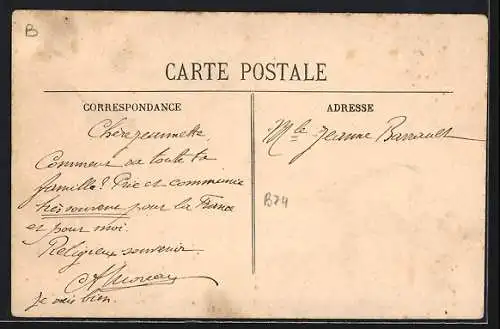 B
CARTE POSTALE
CORRESPONDANCE
ADRESSE
Chère Jeannette
Comment va toute ta
famille? Prie et communie
très souvent pour la France
et pour moi.
Religieux souvenir
A Moreau
Je vais bien.
Mlle Jeanne Barrault
B24